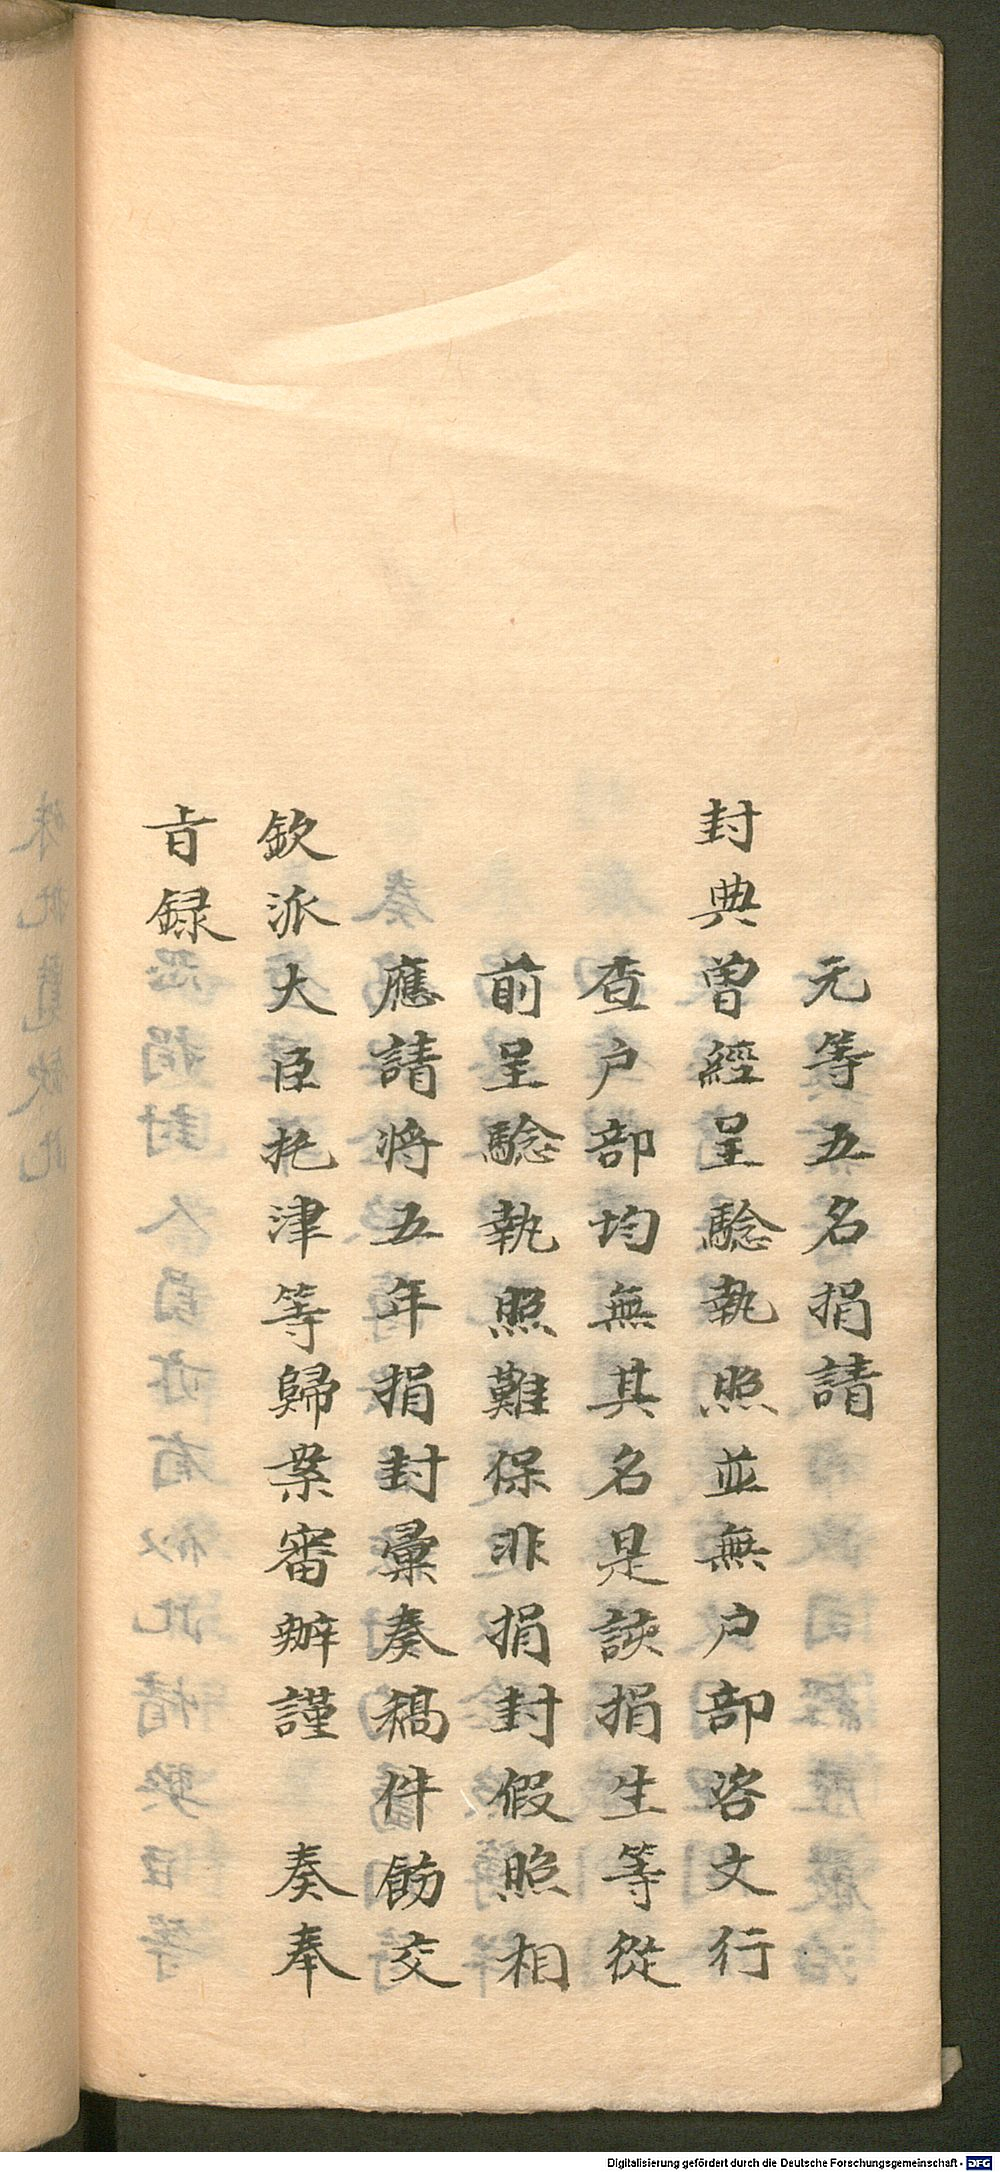 元等五名捐請
封典曾經呈騐執照並無户部咨文行
查户部均無其名是該捐生等從
前呈騐執照難保非捐封假照相
應請將五年捐封彙奏稿件飭交
欽派大臣托津等歸案審辦謹 奏奉
旨録
Digitalisierung gefördert durch die Deutsche Forschungsgemeinschaft - DFG